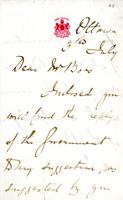 Ottawa
3rd July
Dear Mr
Inclosed you
will find the reply
of the Government
to my suggestion as
suggested by you